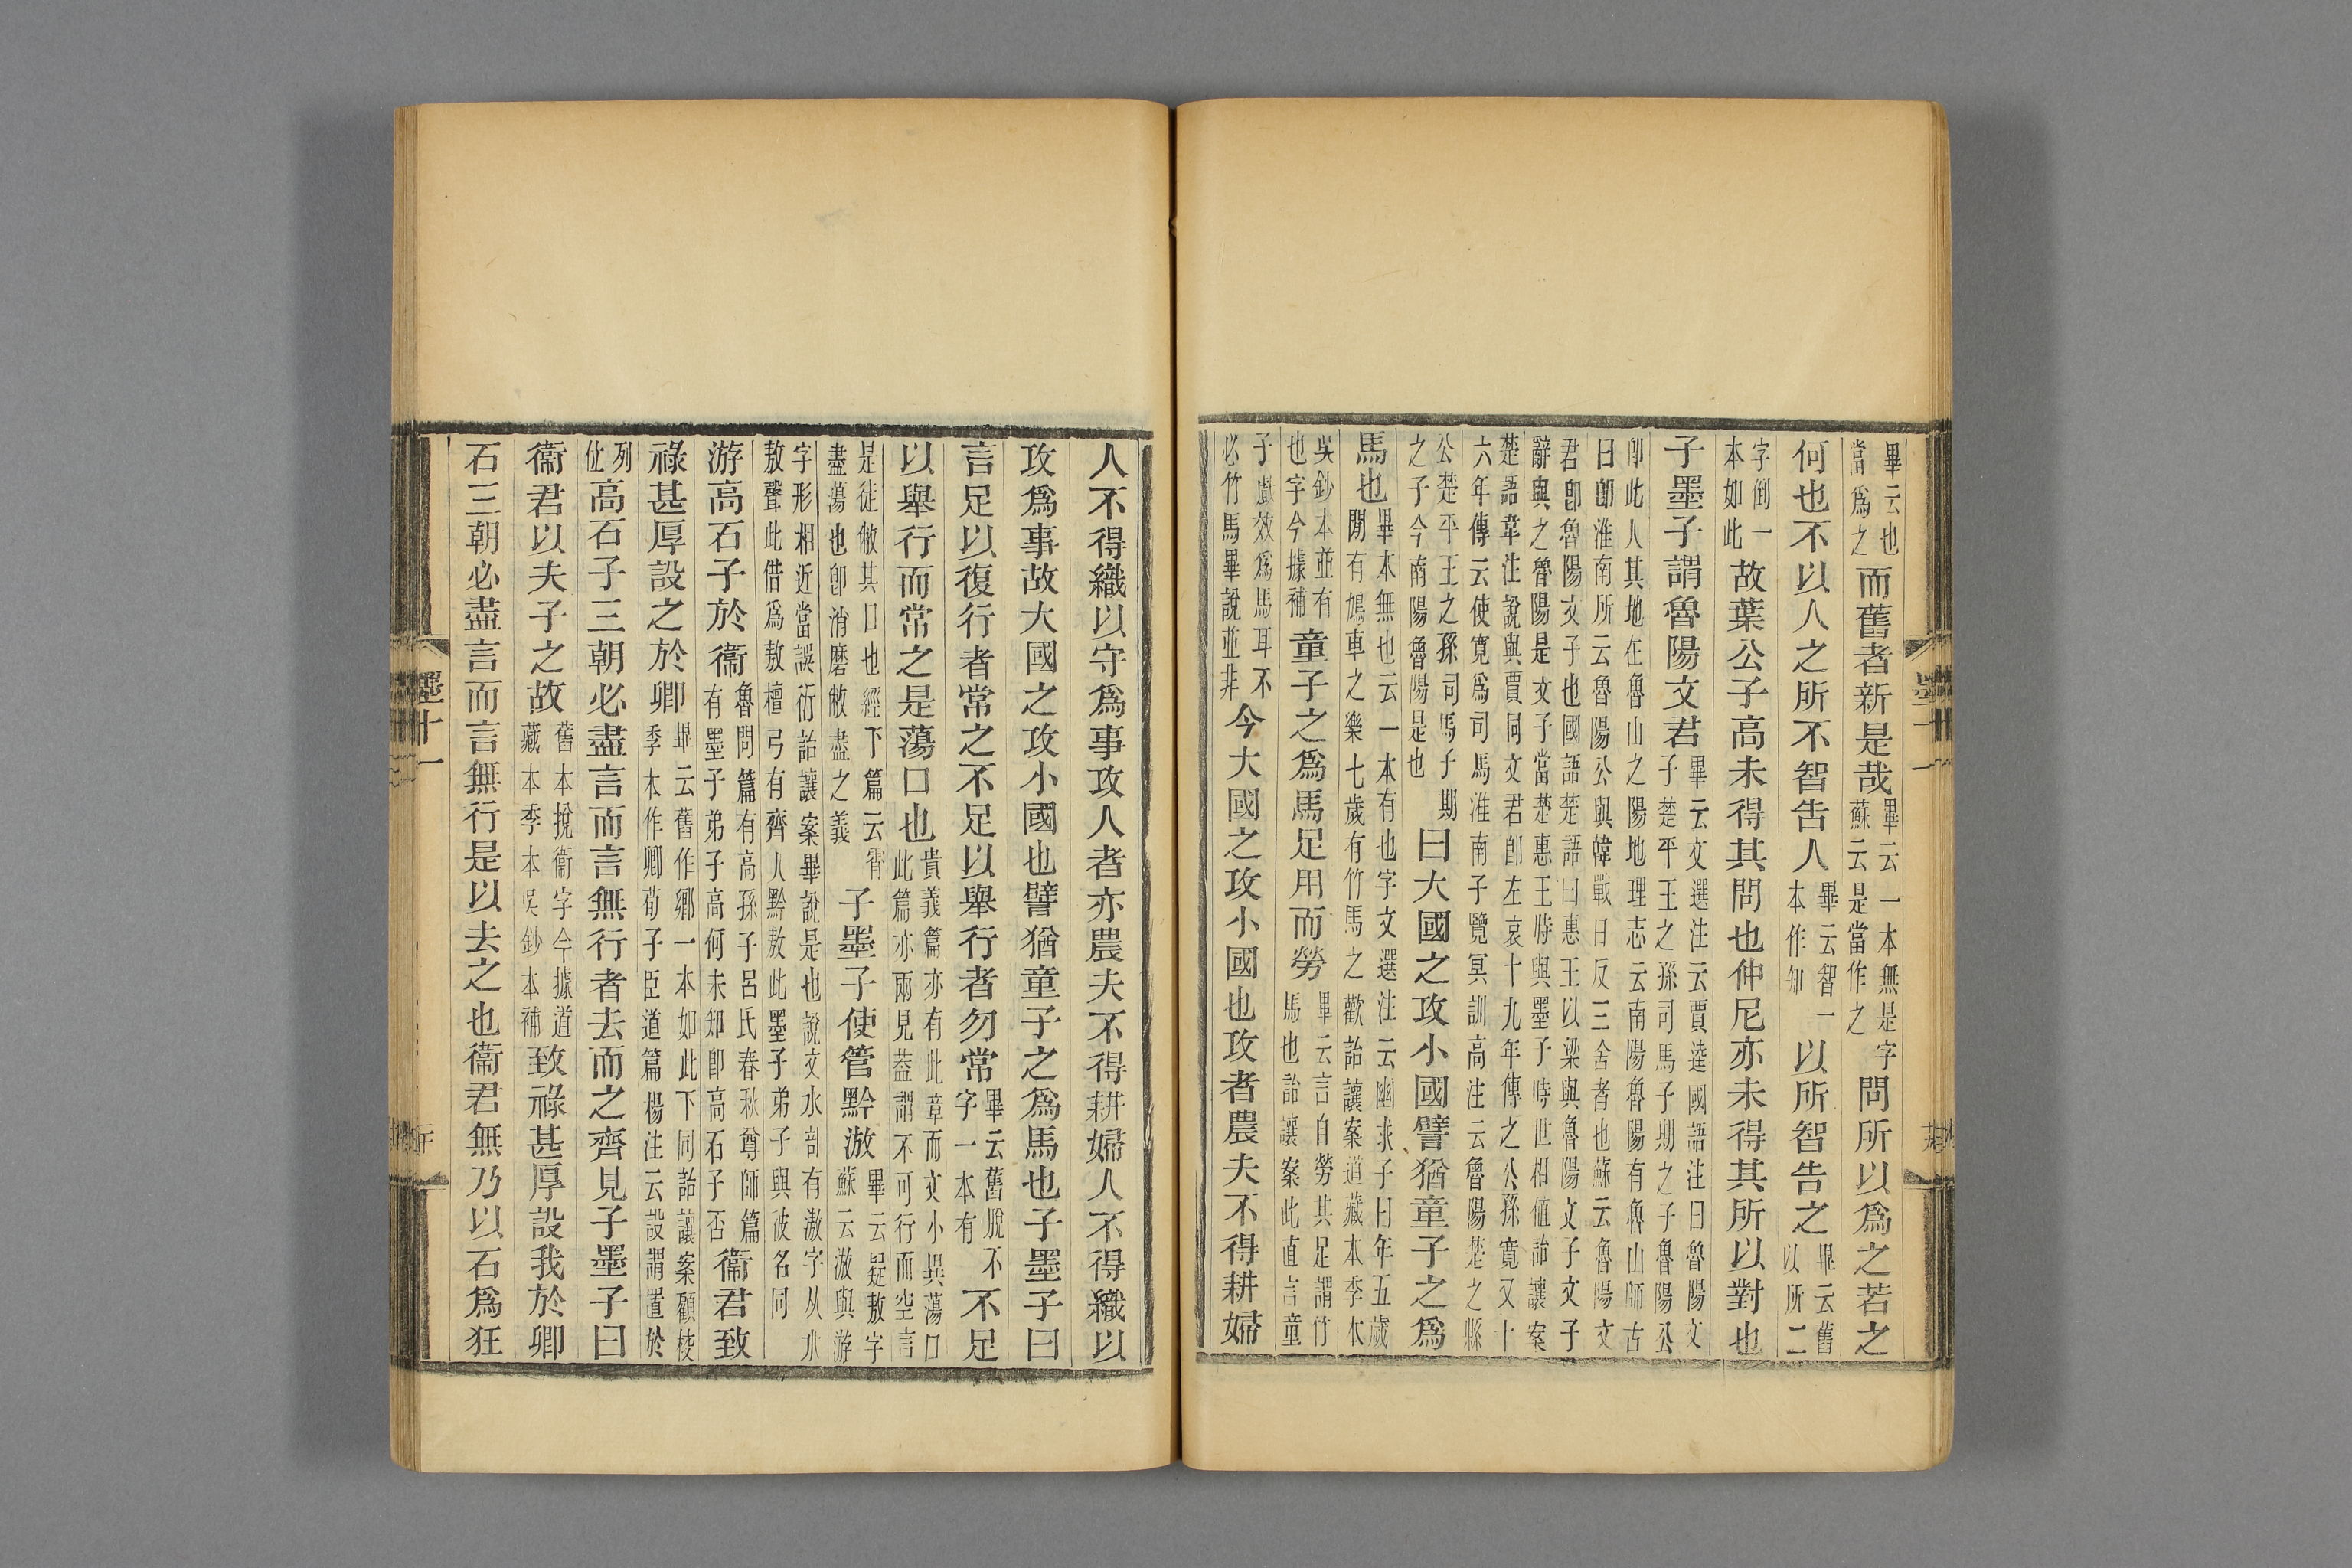 畢云也當爲之而舊者新是哉畢云一本無是字蘇云是當作之問所以爲之若之
何也不以人之所不智告人畢云智一本作知以所智告之畢云舊以所二
字倒一本如此故葉公子高未得其問也仲尼亦未得其所以對也
子墨子謂魯陽文君畢云文選注云賈逵國語注曰魯陽文子楚平王之孫司馬子期之子魯陽公
卽此人其地在魯山之陽地理志云南陽魯陽有魯山師古曰卽淮南所云魯陽公與韓戰日反三舍者也蘇云魯陽文
君卽魯陽文子也國語楚語曰惠王以梁與魯陽文子文子辭與之魯陽是文子當楚惠王時與墨子時世相値詒讓案
楚語韋注說與賈同文君卽左哀十九年傳之公孫寬又十六年傳云使寬爲司馬淮南子覽冥訓高注云魯陽楚之縣
公楚平王之孫司馬子期之子今南陽魯陽是也曰大國之攻小國譬猶童子之爲
馬也畢本無也云一本有也字文選注云幽求子曰年五歲閒有鳩車之樂七歲有竹馬之歡詒讓案道藏本季本
吳鈔本並有也字今據補童子之爲馬足用而勞畢云言自勞其足謂竹馬也詒讓案此直言童
子戲效爲馬耳不必竹馬畢說並非今大國之攻小國也攻者農夫不得耕婦
人不得織以守爲事攻人者亦農夫不得耕婦人不得織以
攻爲事故大國之攻小國也譬猶童子之爲馬也子墨子曰
言足以復行者常之不足以舉行者勿常畢云舊脫不字一本有不足
以舉行而常之是蕩口也貴義篇亦有此章而文小異蕩口此篇亦兩見葢謂不可行而空言
是徒敝其口也經下篇云霄盡蕩也卽消磨敝盡之義子墨子使管黔滶畢云疑敖字蘇云滶與游
字形相近當誤衍詒讓案畢說是也說文水部有滶字从水敖聲此借爲敖檀弓有齊人黔敖此墨子弟子與彼名同
游高石子於衞魯問篇有高孫子呂氏春秋尊師篇有墨子弟子高何未知卽高石子否衞君致
祿甚厚設之於卿畢云舊作鄉一本如此下同詒讓案顧校季本作卿荀子臣道篇楊注云設謂置於
列位高石子三朝必盡言而言無行者去而之齊見子墨子曰
衞君以夫子之故舊本挩衞字今據道藏本季本吳鈔本補致祿甚厚設我於卿
石三朝必盡言而言無行是以去之也衞君無乃以石爲狂
墨十一